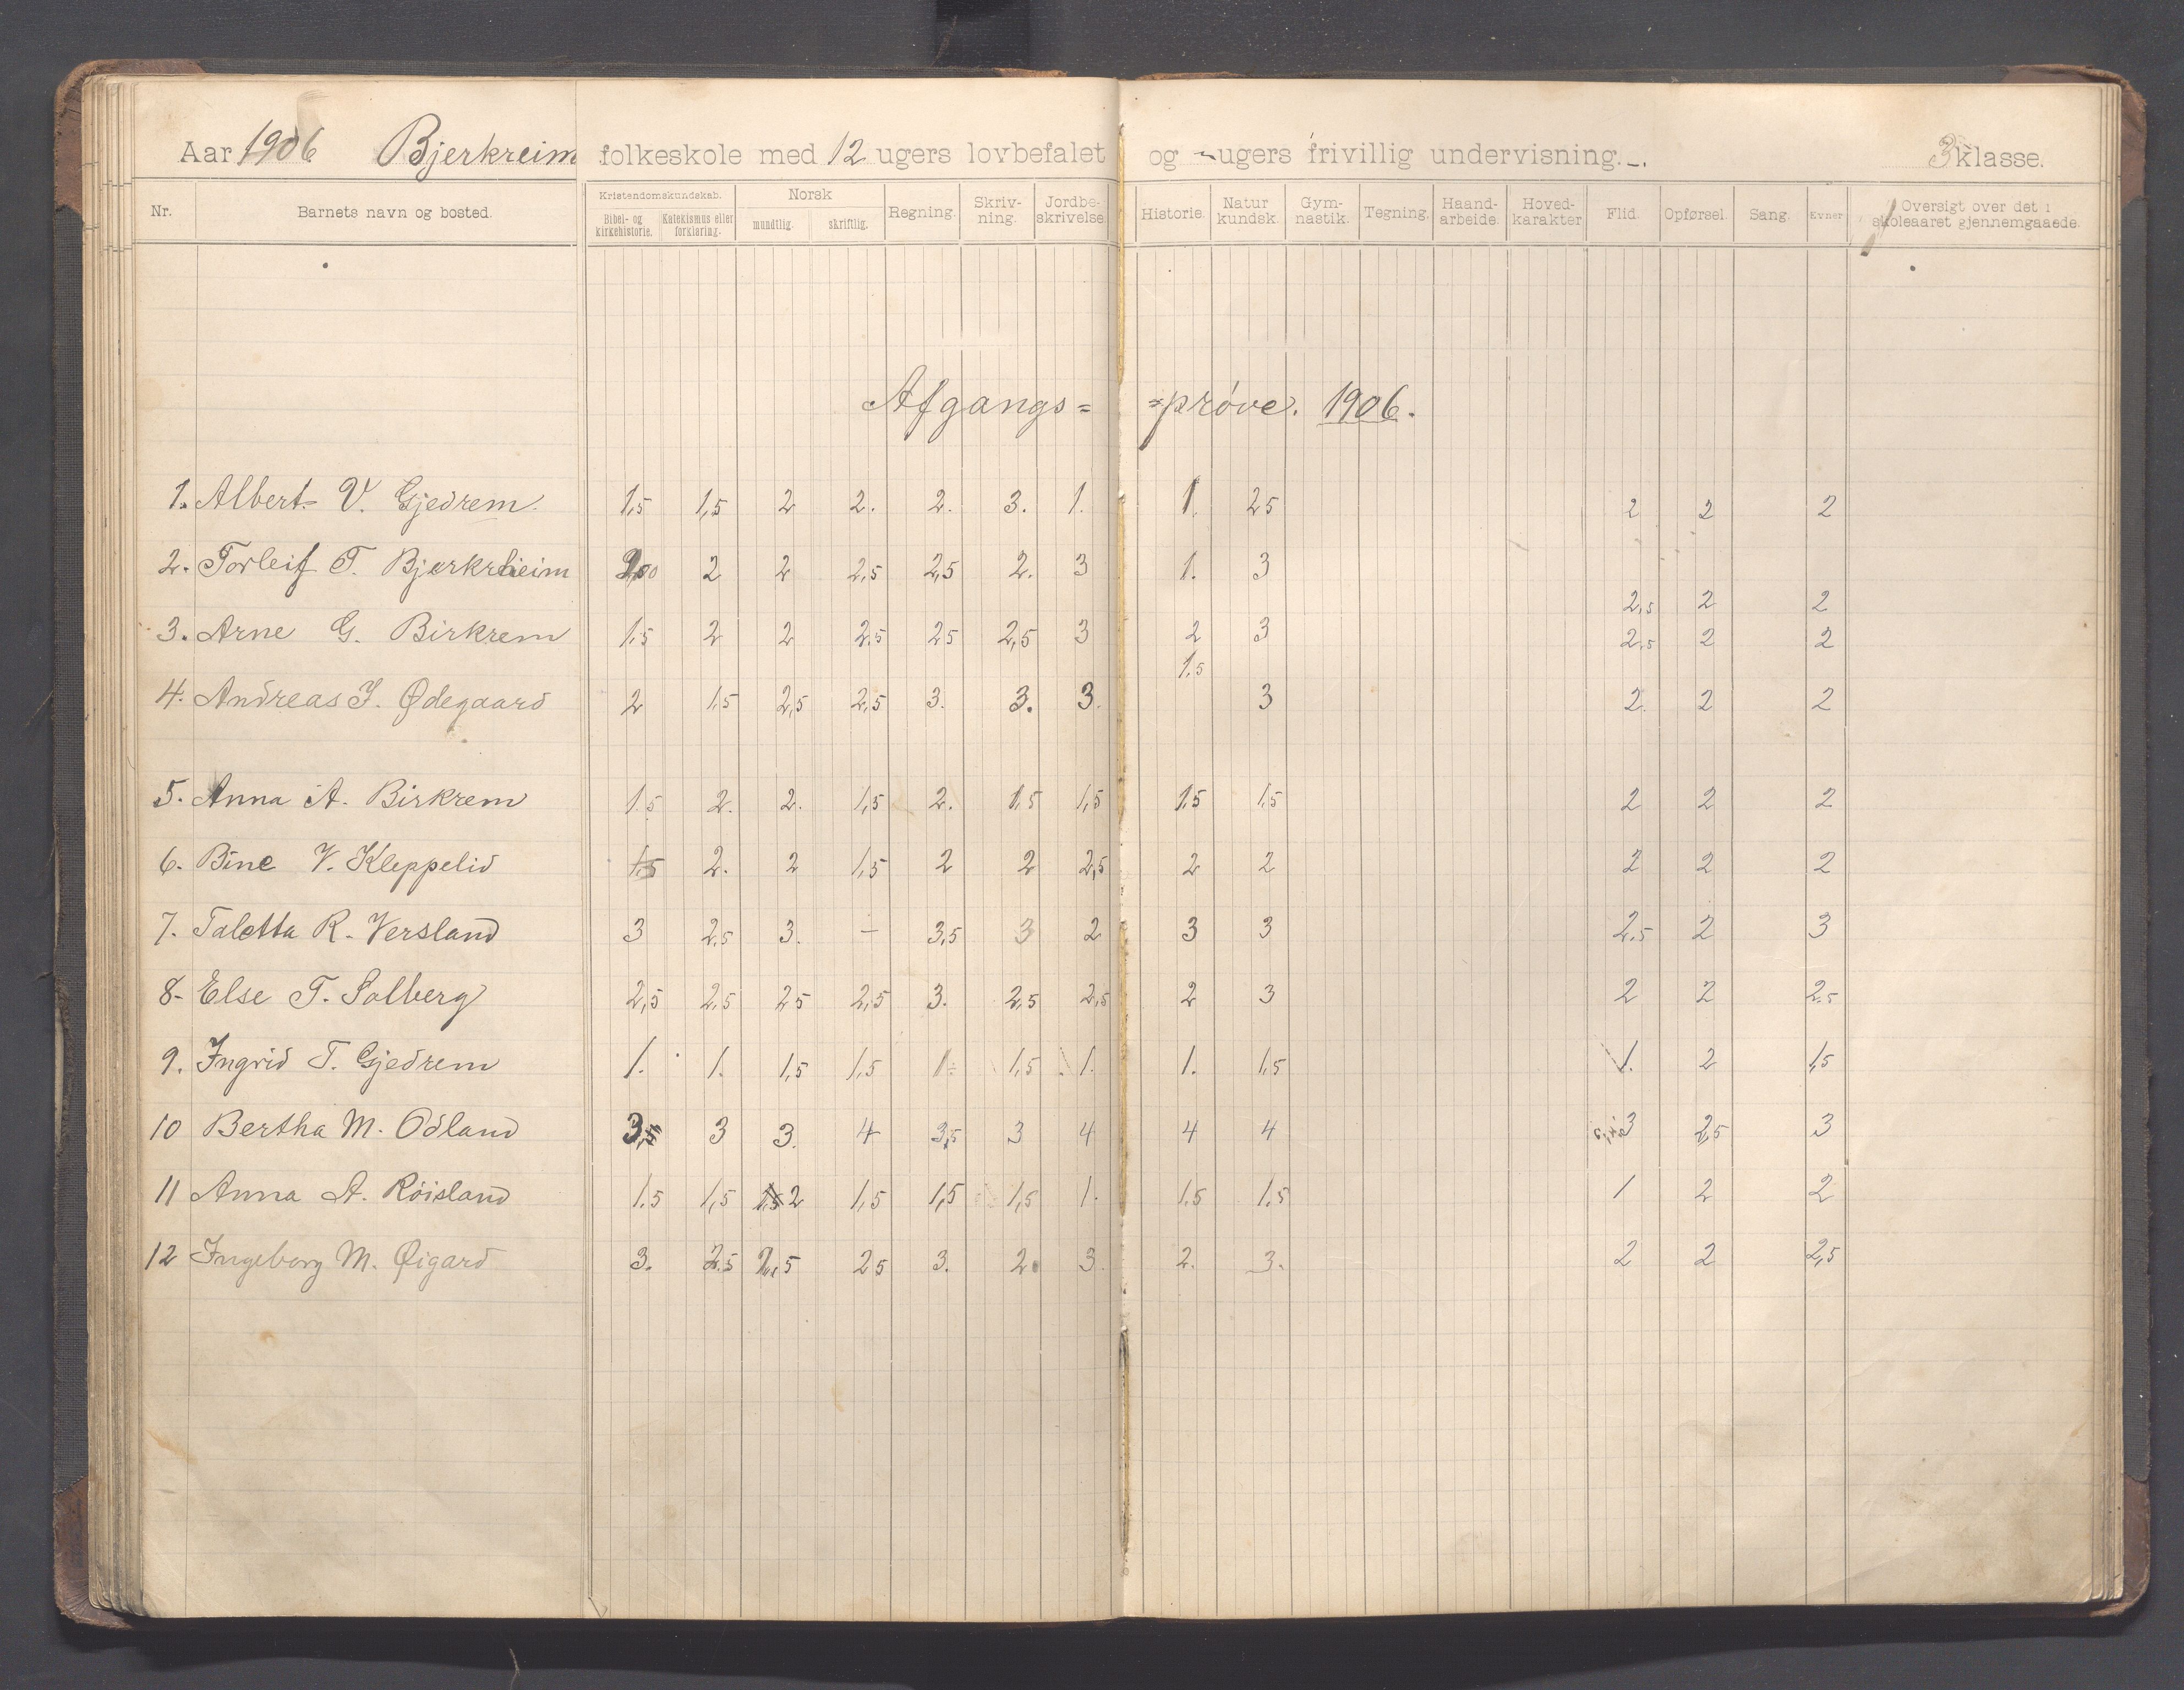 Aar 1906 Bjerkreim folkeskole med 12 ugers lovbefalet og - ugers frivillig undervisning. -. 3 klasse.
Nr. Barnets navn og bosted. Kristendomskundskab. Bibel- og kirkehistorie. Katekismus eller forklaring. Norsk mundtlig. skriftlig. Regning. Skriv-ning. Jordbe-skrivelse. Historie. Natur kundsk. Gym-nastik. Tegning. Haand-arbeide. Hoved-karakter Flid. Opførsel. Sang. Evner Oversigt over det i skoleaaret gjennemgaaede.
Afgangs= =prøve. 1906.
1. Albert V. Gjedrem. 1,5 1,5 2 2. 2. 3. 1. 1. 25 2 2 2
2. Torleif T. Bjerkreim 2 2 2,5 2,5 2. 3 1. 3 2,5 2 2
3. Arne G. Birkrem 1,5 2 2 2,5 25 2,5 3 2 3 2,5 2 2
4. Andreas J. Ødegaard 2 1,5 2,5 2,5 3. 3. 3. 1,5 3 2 2 2
5. Anna A. Birkrem 1.5 2. 2. 1,5 2. 1,5 1,5 1,5 1,5 2 2 2
6. Bine V. Kleppelid 1.5 2. 2 1,5 2 2 2,5 2 2 2 2 2
7. Taletta R. Versland 3 2,5 3. — 3,5 3 2 3 3 2.5 2 3
8. Else T. Solberg 2,5 2,5 25 2,5 3. 2,5 2,5 2 3 2 2 2,5
9. Ingrid T. Gjedrem 1. 1. 1,5 1,5 1 1,5 1. 1. 1,5 1. 2 1,5
10 Bertha M. Odland 3,5 3 3. 4 3,5 3 4 4 4 3 2,5 3
11 Anna A. Røisland 1.5 1,5 1,5 2 1,5 1,5 1,5 1. 1.5 1.5 1 2 2
12 Ingeborg M. Øigard 3. 2.5 2,5 25 3. 2. 3. 2. 3. 2 2 2,5